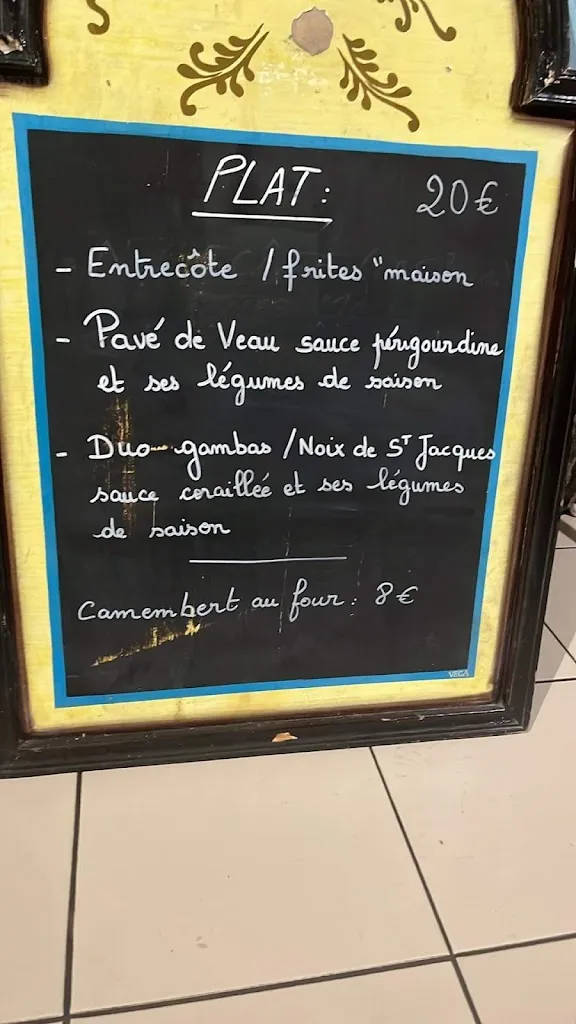 PLAT: 20€
- Entrecôte / frites "maison
- Pavé de Veau sauce périgourdine
et ses légumes de saison
- Duo gambas / Noix de ST Jacques
sauce coraillée et ses légumes
de saison
Camembert au four: 8€
VEGA